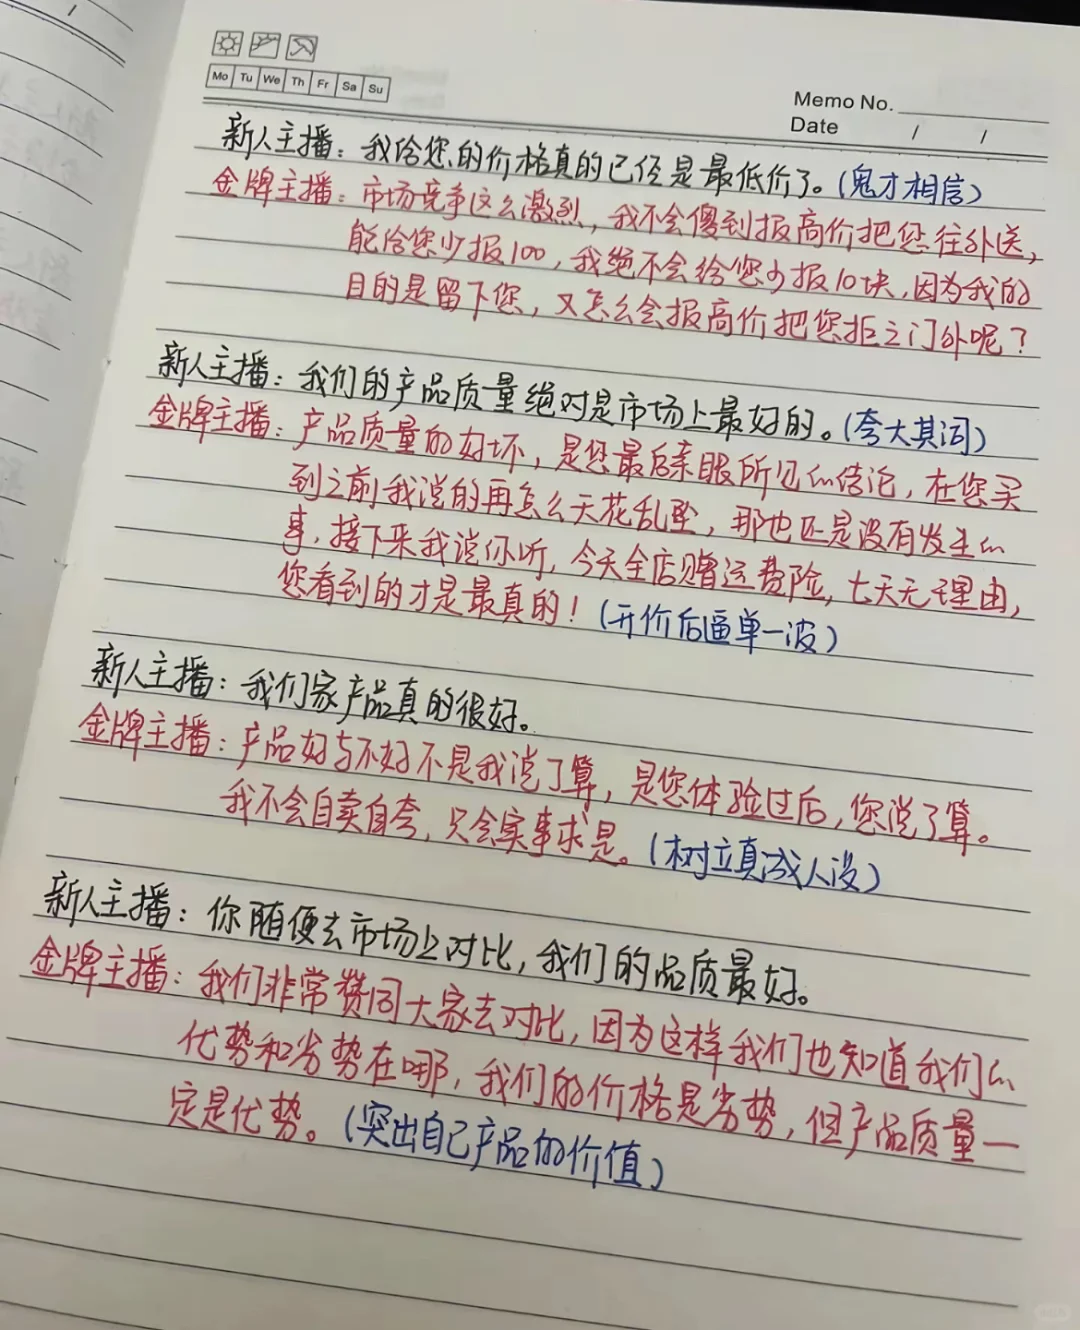 Mo Tu We Th Fr Sa Su
Memo No.
Date / /
新人主播：我给您的价格真的已经是最低价了。(鬼才相信)
金牌主播：市场竞争这么激烈，我不会傻到报高价把您往外送，
能给您少报100，我绝不会给您少报10块，因为我的
目的是留下您，又怎么会报高价把您拒之门外呢？
新人主播：我们的产品质量绝对是市场上最好的。(夸大其词)
金牌主播：产品质量的好坏，是您最后亲眼所见的结论，在您买
到之前我说的再怎么天花乱坠，那也还是没有发生的
事，接下来我说你听，今天全店赠运费险，七天无理由，
您看到的才是最真的！(开价后逼单一波)
新人主播：我们家产品真的很好。
金牌主播：产品好与不好不是我说了算，是您体验过后，您说了算。
我不会自卖自夸，只会实事求是。(树立真诚人设)
新人主播：你随便去市场上对比，我们的品质最好。
金牌主播：我们非常赞同大家去对比，因为这样我们也知道我们的
优势和劣势在哪，我们的价格是劣势，但产品质量一
定是优势。(突出自己产品的价值)